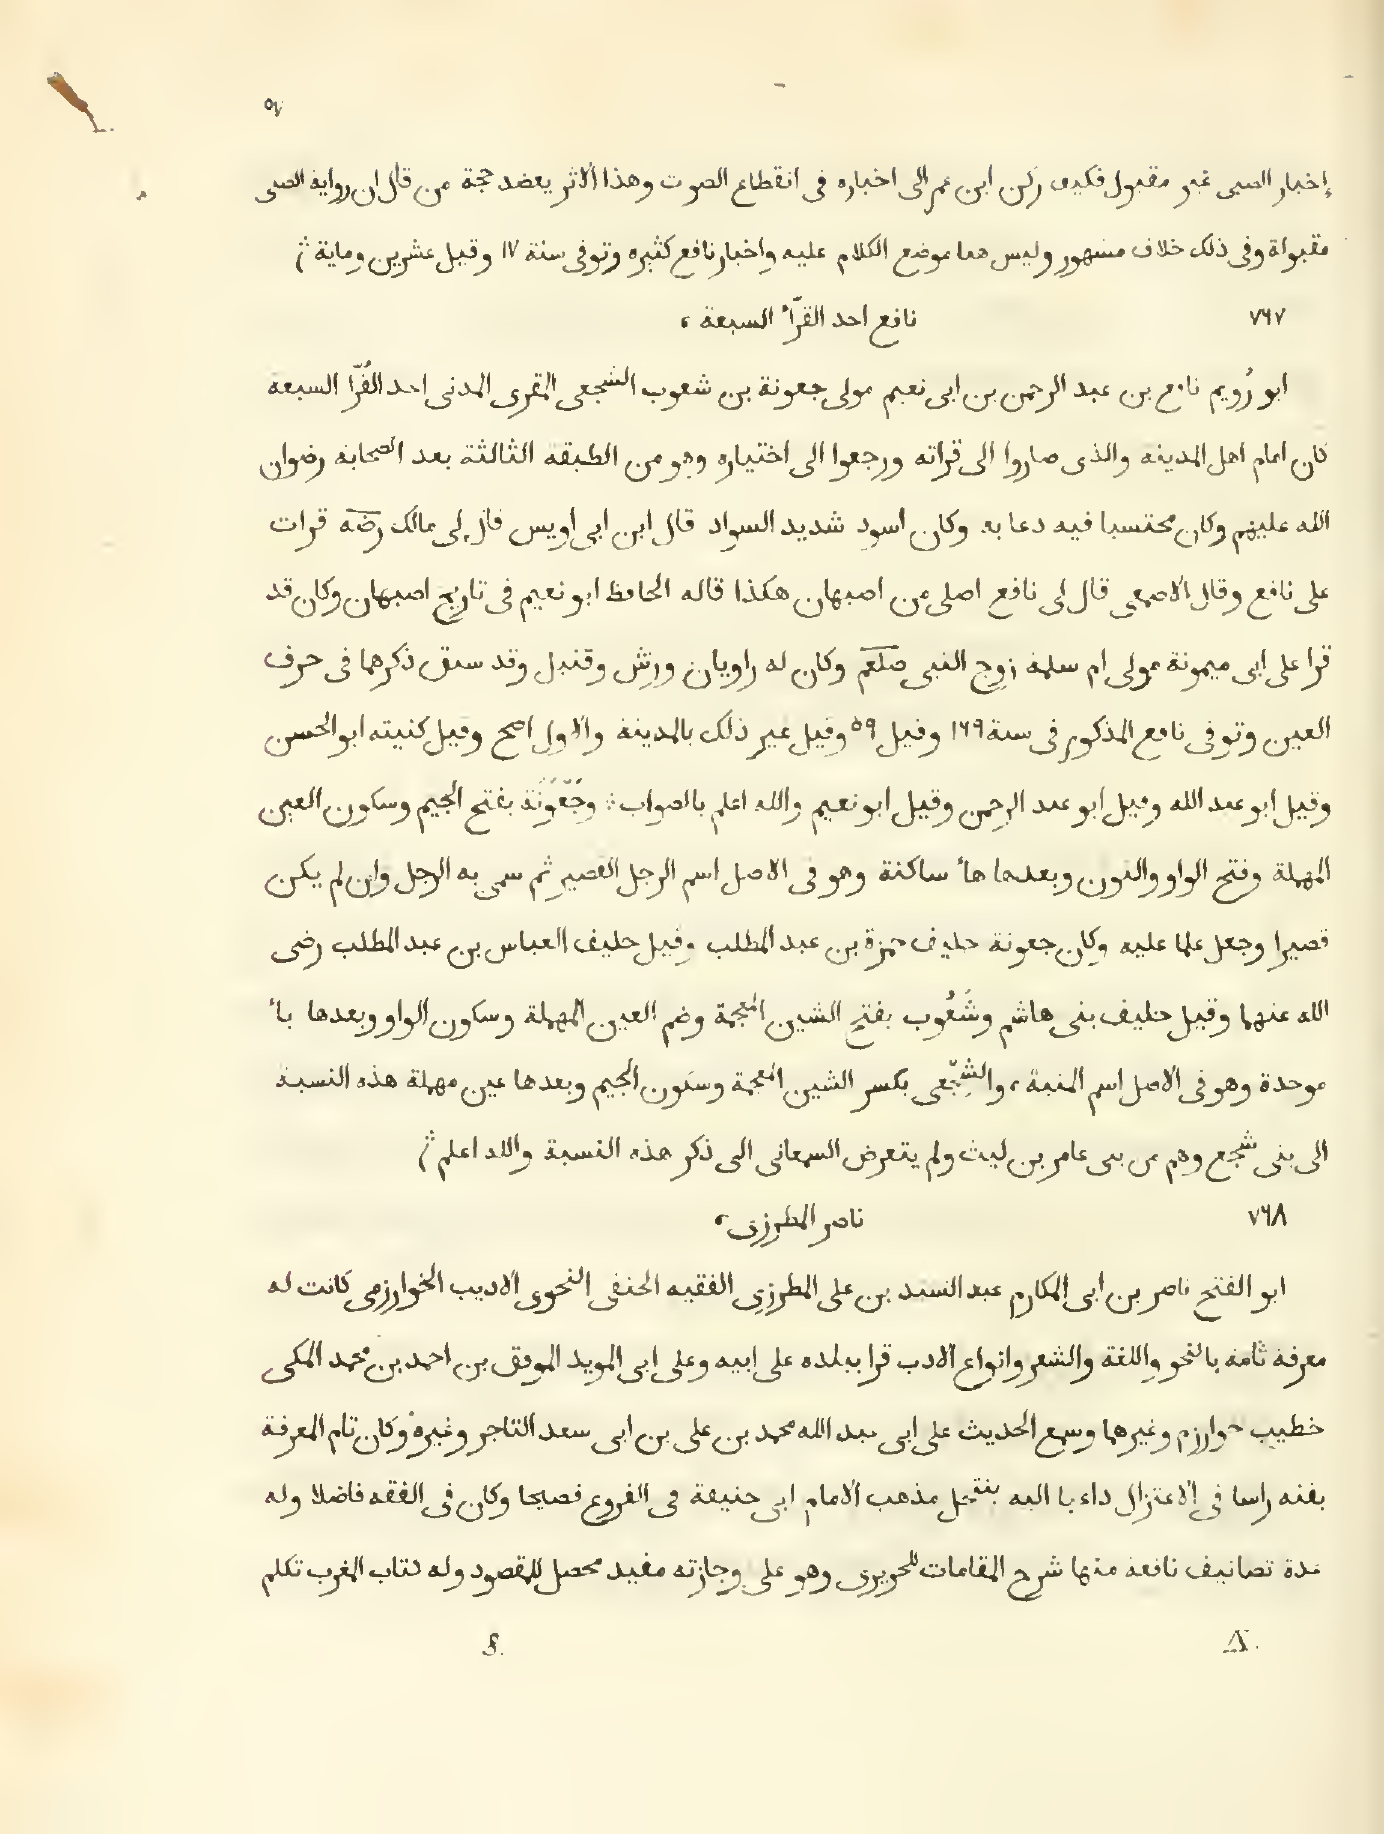 ٥٧
إخبار الصبى غير مقبول فكيف ركن ابن عمر الى اخباره فى انقطاع الصوت وهذا الاثر يعضد حجة من قال ان رواية الصبى
مقبولة وفى ذلك خلاف مشهور وليس هما موضع الكلام عليه واخبار نافع كثيره وتوفى سنة ١٧ وقيل عشرين وماية ؞
٧٦٧ نافع احد القرّاء السبعة ،
ابو رُويم نافع بن عبد الرحمن بن ابى نعيم مولى جعونة بن شعوب الشجعى المقرى المدنى احد القُرّا السبعة
كان امام اهل المدينة والذى صاروا الى قراته ورجعوا الى اختياره وهو من الطبقة الثالثة بعد الصحابة رضوان
الله عليهم وكان محتسبا فيه دعابة وكان اسود شديد السواد قال ابن ابى اويس قال لى مالك رضه قرات
على نافع وقال الاصمعى قال لى نافع اصلى من اصبهان هكذا قاله الحافظ ابو نعيم فى تاريخ اصبهان وكان قد
قرا على ابى ميمونة مولى ام سلمة زوج النبى صلعم وكان له راويان ورش وقنبل وقد سبق ذكرهما فى حرف
العين وتوفى نافع المذكور فى سنة ١٦٩ وقيل ٥٩ وقيل غير ذلك بالمدينة والاول اصح وقيل كنيته ابو الحسن
وقيل ابو عبد الله وقيل ابو عبد الرحمن وقيل ابو نعيم والله اعلم بالصواب ؞ وجَعْوَنَة بفتح الجيم وسكون العين
المهملة وفتح الواو والنون وبعدها هاء ساكنة وهو فى الاصل اسم الرجل القصير ثم سمى به الرجل وان لم يكن
قصيرا وجعل علما عليه وكان جعونة حليف حمزة بن عبد المطلب وقيل حليف العباس بن عبد المطلب رضى
الله عنهما وقيل حليف بنى هاشم وشَعُوب بفتح الشين المعجمة وضم العين المهملة وسكون الواو وبعدها باء
موحدة وهو فى الاصل اسم المنية ، والشِجْعى بكسر الشين المعجمة وسكون الجيم وبعدها عين مهملة هذه النسبة
الى بنى شجع وهم من بنى عامر بن ليث ولم يتعرض السمعانى الى ذكر هذه النسبة والله اعلم ؞
٧٦٨ ناصر المطرزى ،
ابو الفتح ناصر بن ابى المكارم عبد السيد بن على المطرزى الفقيه الحنفى النحوى الاديب الخوارزمى كانت له
معرفة تامة بالنحو واللغة والشعر وانواع الادب قرا ببلده على ابيه وعلى ابى المويد الموفق بن احمد بن محمد المكى
خطيب خوارزم وغيرهما وسمع الحديث على ابى عبد الله محمد بن على بن ابى سعد التاجر وغيره وكان تام المعرفة
بفنه راسا فى الاعتزال داعيا اليه ينتحل مذهب الامام ابى حنيفة فى الفروع فصيحا وكان فى الفقه فاضلا وله
عدة تصانيف نافعة منها شرح المقامات للحريرى وهو على وجازته مفيد محصل للمقصود وله كتاب المغرب تكلم